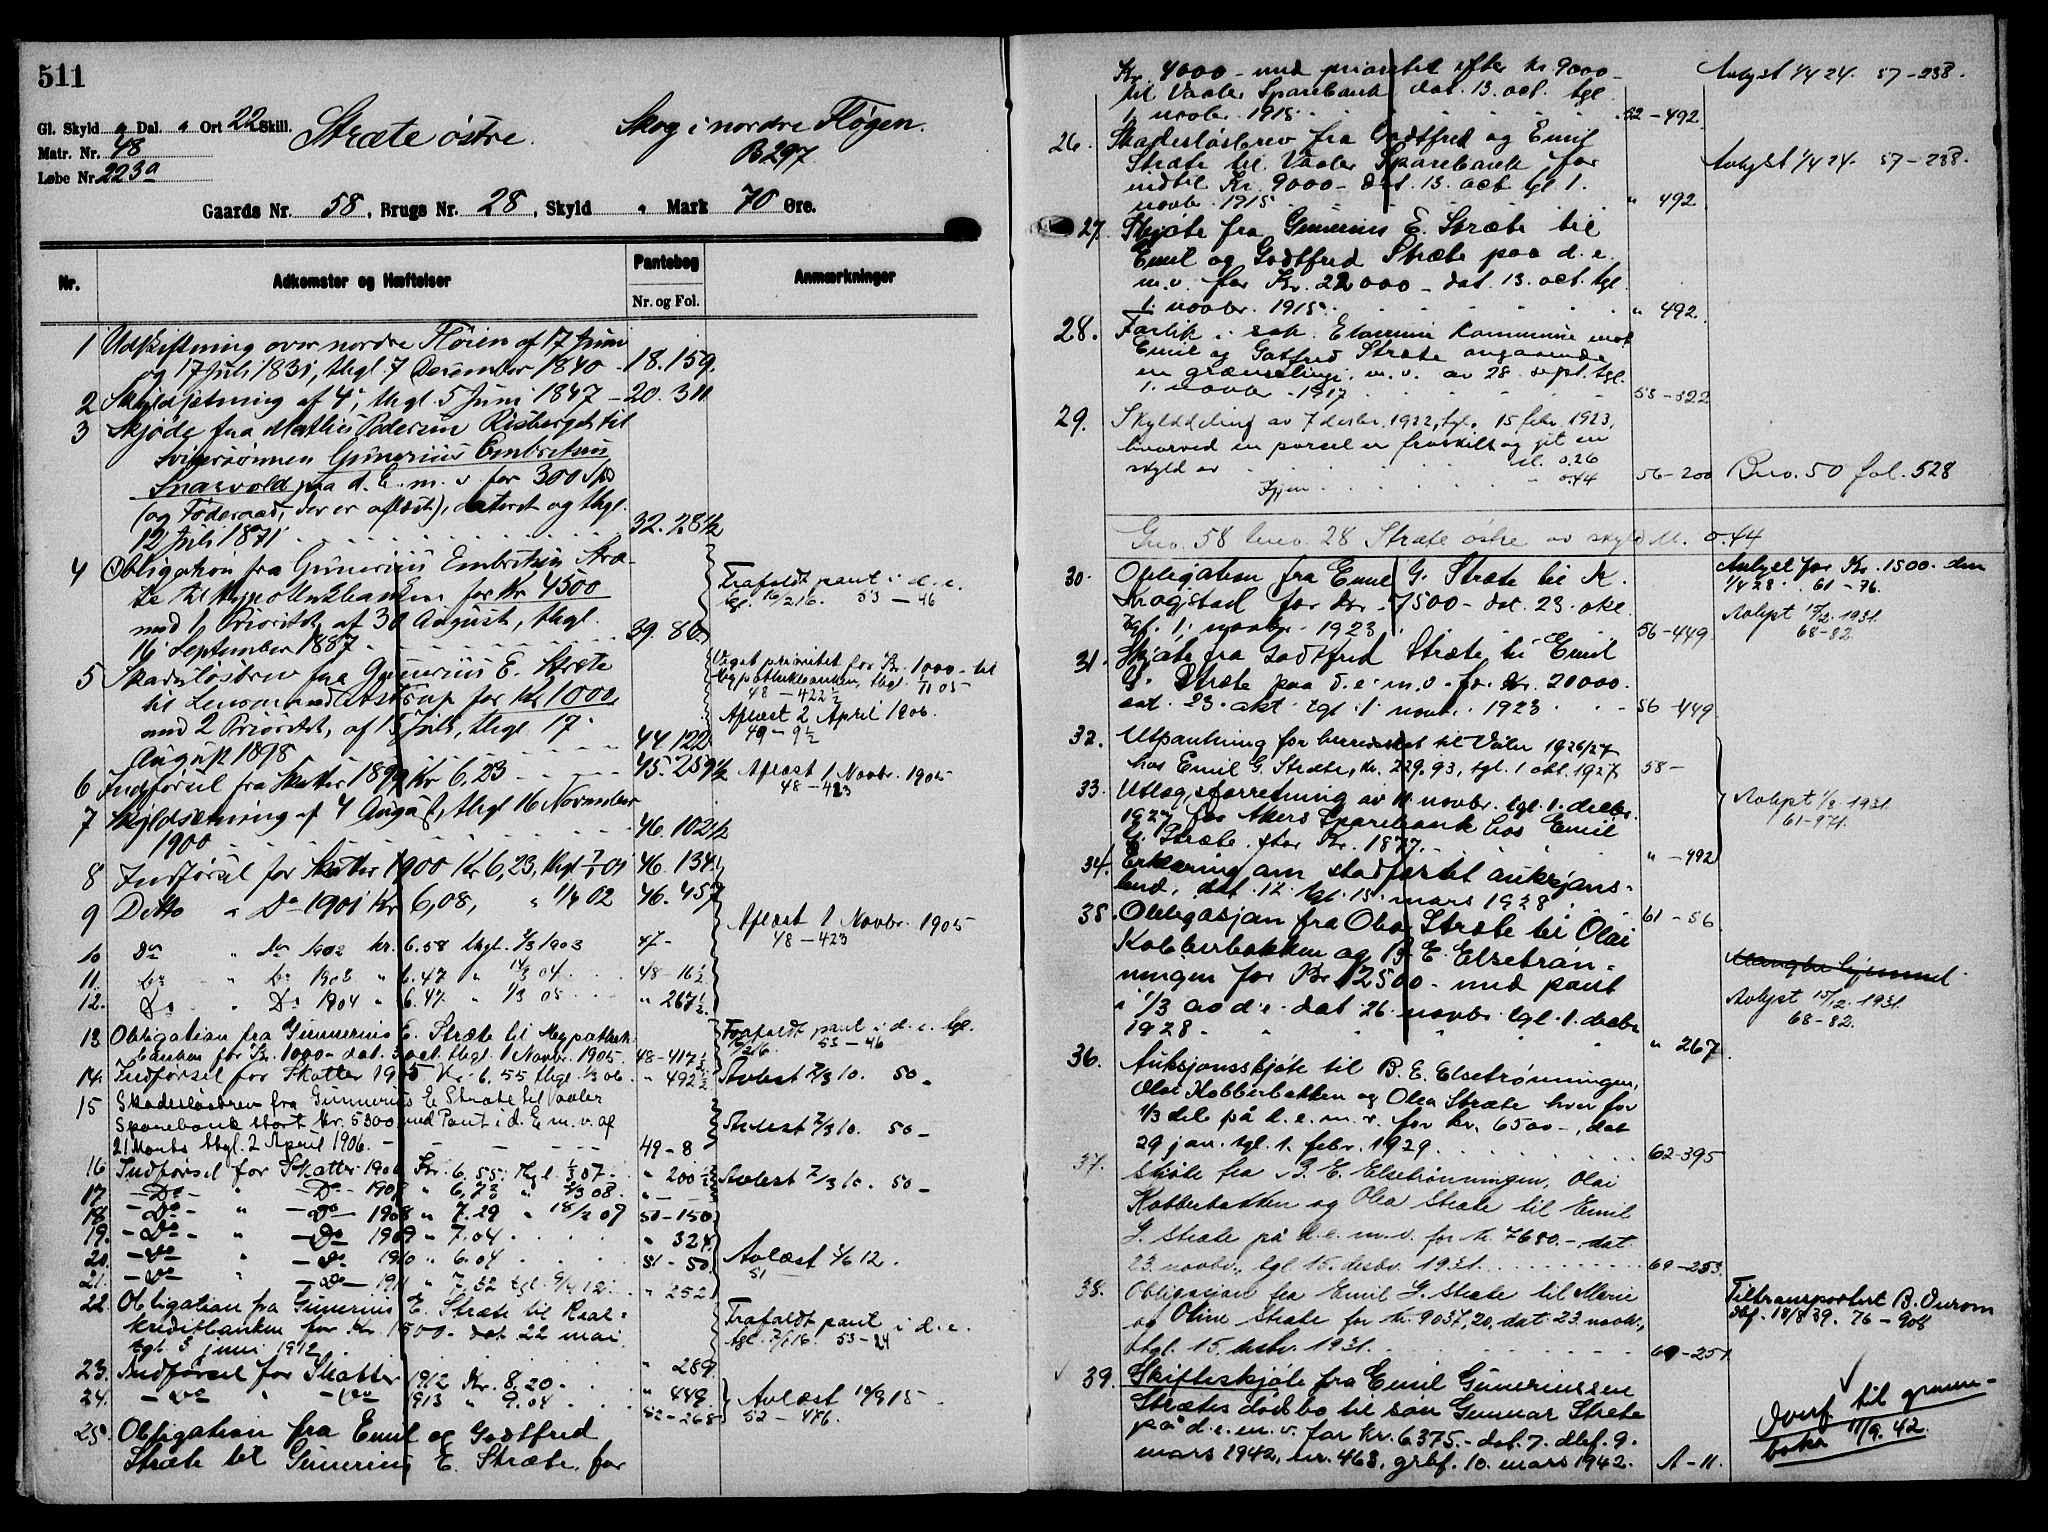 511
Gl. Skyld " Dal. " Ort 22 Skill.
Matr. Nr. 48
Løbe Nr. 223a
Stræte østre.
Skog i nordre Fløgen.
B 297
Gaards Nr. 58, Brugs Nr. 28, Skyld " Mark 70 Øre.
Nr.
Adkomster og Hæftelser
Pantebog
Nr. og Fol.
Anmærkninger
1 Udskiftning over nordre Fløien af 17 Juni
og 17 Juli 1831, thgl. 7 December 1840 - 18.159.
2 Skyldsætning af 4, thgl. 5 Juni 1847 - 20.311
3 Skjøde fra Mathis Pedersen Risberget til
Svigersønnen Gunerius Embretsen
Snarvold paa d. E. m. v. for 300 Spd
(og Føderaad, der er aflæst), dateret og thgl.
12 Juli 1871 . . . 32. 28 1/2
4 Obligation fra Gunerius Embretsen Stræ-
te til Hypothekbanken for Kr 4500
med 1 Prioritet af 30 August, thgl.
16 September 1887 . . . 39. 80
Frafaldt pant i d. e.
tgl. 16/2 16. 53 - 46
5 Skadesløsbrev fra Gunerius E. Stræte
til Lensmand for Kr 1000
med 2 Prioritet, af 15 Juli, thgl. 17
August 1898 . . . 44.122
Veget prioritet for Kr. 1000 - til
Hypothekbanken, thgl. 1/11 05 -
48 - 422 1/2
Aflæst 2 April 1906.
49 - 9 1/2
6 Indførsel fra Skatter 1899 Kr 6,23 - - - 45. 259 1/2
Aflæst 1 Novbr. 1905
48 - 423
7 Skyldsætning af 4 August, thgl 16 November
1900 . . . 46. 102 1/2
8 Indførsel for Skatter 1900 Kr 6,23, thgl 7/1 01 46. 134
9 Ditto " Do 1901 Kr 6,08, " 1/4 02 46. 457
10 Do " Do 1902 kr. 6.58 thgl. 2/3 1903 47 -
11. Do " Do 1903 " 6.47 " 14/3 04 . . . 48 - 16 1/2
12. Do " Do 1904 " 6.47 " 1/3 05 . . . " 267 1/2
Aflæst 1 Novbr. 1905
48 - 423
13 Obligation fra Gunnerius E. Stræte til Hypothek-
banken for Kr. 1000 - dat. 3 oct. thgl. 1 Novbr. 1905. 48 - 417 1/2
Frafaldt pant i d. e. tgl.
16/2 16. 53 - 46
14. Indførsel for Skatter 1905 Kr. 6.55 thgl. 1/3 06. " 492 1/2
Avlæst 7/3 10. 50 -
15 Skadesløsbrev fra Gunnerius E. Stræte til Vaaler
Sparebank stort kr. 5300 med Pant i d. E. m. v. af
21 Marts thgl. 2 April 1906. - 49 - 8
Avlæst 7/3 10. 50 -
16. Indførsel for Skatter 1906 Kr. 6.55. thgl. 1/3 07 - " 200 1/2
17 - Do - " - Do - 1907 " 6,73 " 2/3 08. " -
Avlæst 7/3 10. 50 -
18. - Do - " - Do - 1908 " 7.29 " 18/2 09 50 - 150
19. - Do - " - Do - 1909 " 7.04 . . . " 324
20. - Do - " - Do - 1910 " 6.04 . . . 51 - 50
21. - Do - " - Do - 1911 " 7,32 tgl. 9/4 12. " 252
Avlæst 3/6 12.
51
22. Obligation fra Gunerius E. Stræte til Real-
kreditbanken for Kr. 1500 - dat 22 mai
tgl. 3 juni 1912. " 289
Frafaldt pant i d. e.
tgl. 7/1 16. 53 - 24
23. Indførsel for Skatter 1912 Kr. 8,20 - . . . " 449
24. - Do " - Do 1913 " 9.04 . . . 52 - 268
Avlæst 19/9 15 -
52 - 476.
25. Obligation fra Emil og Godtfred
Stræte til Gunerius E. Stræte for
Kr. 4000 - med prioritet efter kr 9000 -
til Vaaler Sparebank dat. 13. oct. tgl.
1. novbr. 1915. . . . 52 - 492.
Avlyst 1/4 24. 57 - 238.
26. Skadesløsbrev fra Godtfred og Emil
Stræte til Vaaler Sparebank for
indtil Kr. 9000 - dat. 13. oct tgl 1.
novbr. 1915 . . . " 492.
Avlyst 1/4 24. 57 - 238.
27. Skjøte fra Gunnerius E. Stræte til
Emil og Godtfred Stræte paa d. e.
m. v. for Kr. 22000 - dat. 13. oct. tgl
1. novbr. 1915. . . . " 492.
28. Forlik i sak Elverum kommune mot
Emil og Gotfred Stræte angaaende
en grænselinje m. v. av 28. sept. tgl.
1. novbr. 1917 . . . 53 - 522
29. Skylddeling av 7 desbr. 1922, tgl. 15 febr. 1923,
hvorved en parsel er fraskilt og git en
skyld av . . . M. 0.26
Igjen . . . - 0.44
56 - 200 Bno. 50 fol. 528
Gno. 58 bno. 28 Stræte østre av skyld M. 0.44
30. Obligation fra Emil G. Stræte til K.
Krogstad for kr. 7500 - dat. 23. okt.
tgl. 1. novbr. 1923. . . 56 - 449.
Avlyst for Kr. 1500 - den
1/4 28. 61 - 76.
Avlyst 15/12. 1931.
68 - 82.
31. Skjøte fra Godtfred Stræte til Emil
G. Stræte paa d. e. m. v. for Kr. 20000.
dat. 23. okt. tgl. 1. novbr. 1923 . . - 56 - 449.
32. Utpantning for herredsskat til Våler 1926/27
hos Emil G. Stræte, kr. 229.93, tgl. 1 okt. 1927 58 -
33. Utlægsforretning av 11. novbr. tgl. 1. decbr.
1927 for Akers Sparebank hos Emil
G. Stræte, stor Kr. 1877. - " - 492
Avlyst 1/3 - 1931.
61 - 971.
34. Erklæring om stadfæstet auksjons-
bud, dat. 12. tgl. 15. mars 1928 . 61 - 56
35. Obligasjon fra Olea Stræte til Olai
Kobberbakken og B. E. Elsetrøn-
ningen for Kr. 2500 - med pant
i 1/3 av d. e. dat. 26. novbr. tgl. 1. decbr
1928. " 267.
Avlyst 15/12. 1931.
68 - 82.
36. Auksjonsskjøte til B. E. Elsetrønningen,
Olai Kobberbakken og Olea Stræte hver for
1/3 del på d. e. m. v. for kr. 6500 -, dat
29 jan. tgl. 1. febr. 1929. . . . 62 - 395
37. Skjøte fra B. E. Elsetrønningen, Olai
Kobberbakken og Olea Stræte til Emil
G. Stræte på d. e. m. v. for kr. 7680. -, dat.
23. novbr., tgl. 15. desbr. 1931. . . . 69 - 253.
38. Obligasjon fra Emil G. Stræte til Marie
og Oline Stræte for kr. 9037,20, dat. 23. novbr.,
tgl. 15. desbr. 1931. . . . 69 - 251.
Tiltransportert B. Ourom
dbf. 18/8 39. 76 - 908
39. Skifteskjøte fra Emil Gunerius­sen
Strætes dødsbo til søn Gunnar Stræte
på d. e. m. v. for kr. 6375. - dat. 7. dbf. 9.
mars 1942, nr. 468, grbf. 10. mars 1942. A - 11.
Overf. til grunn-
boka 11/9. 42.